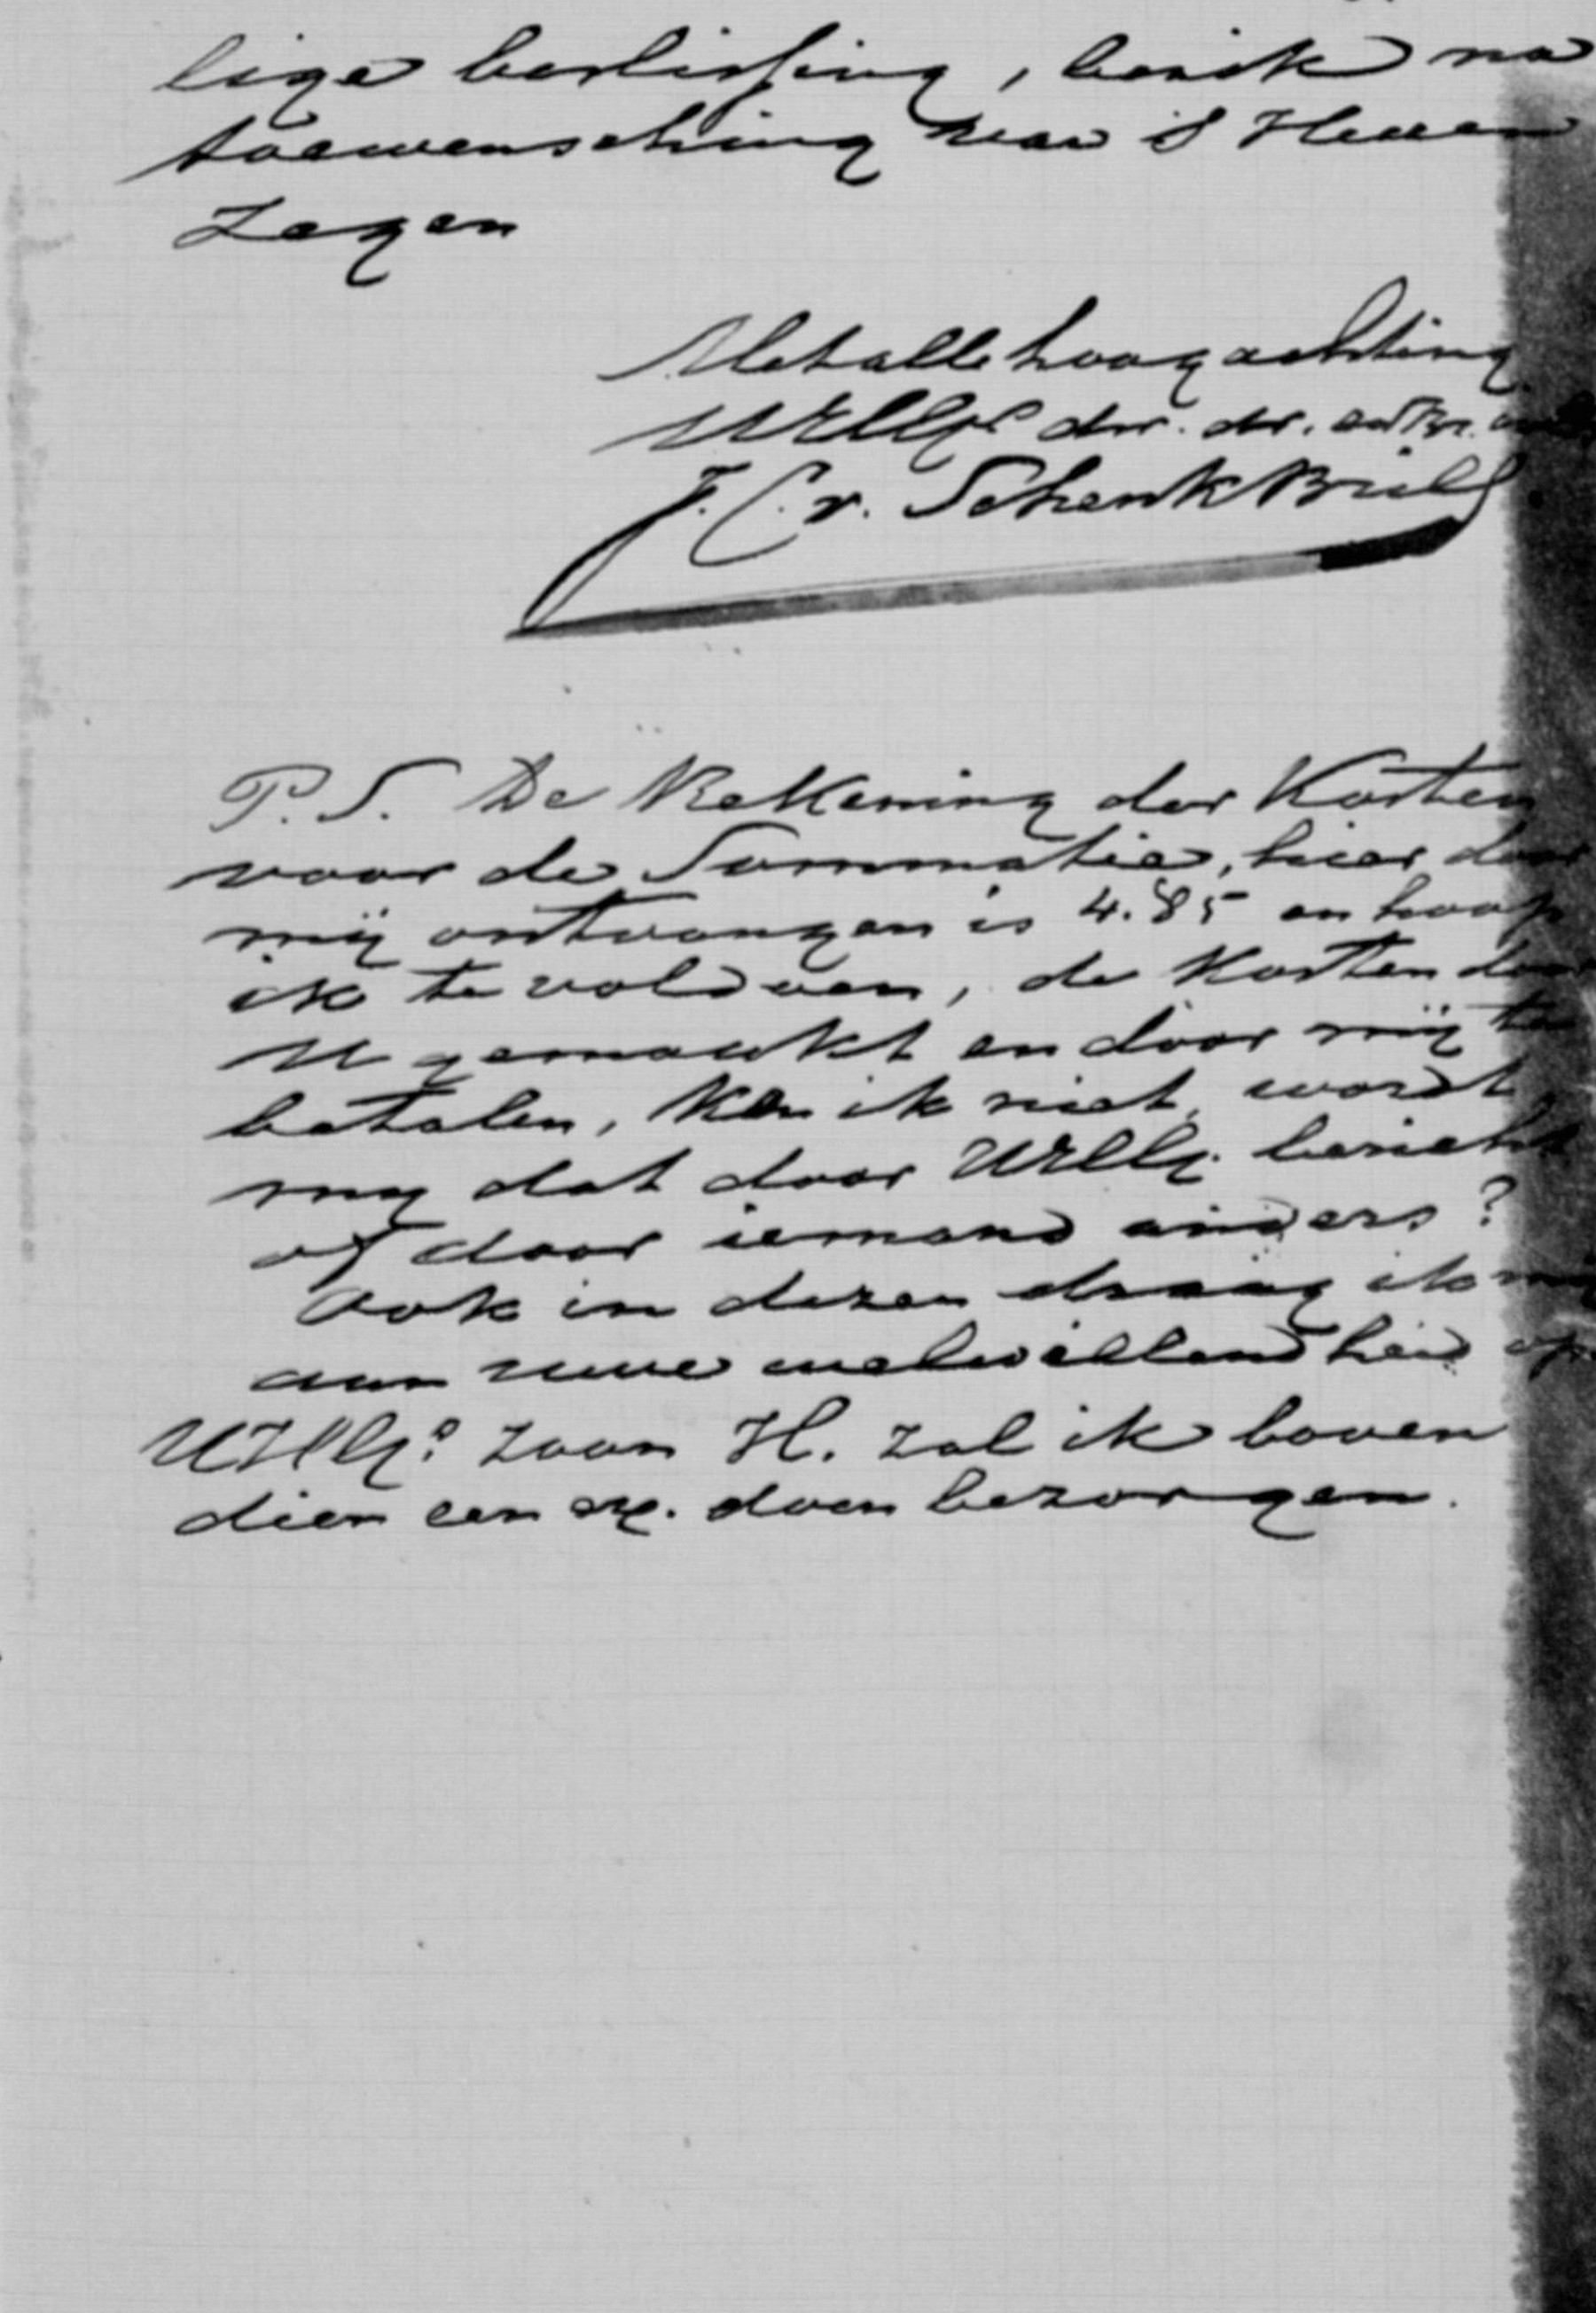 lige beslissing, ben ik na
toewensching van 's Heeren
Zegen
Met alle hoogachting
UEdlg dw. dr. en Br.
J. C. v. Schenk Brill
P. S. De Rekening der Kosten
voor de Sommatie, hier door
mij ontvangen is 4.85 en hoop
ik te voldoen, de Kosten door
U gemaakt en door mij te
betalen, Ken ik niet, wordt
mij dat door UEdlg. bericht
of door iemand anders?
Ook in dezen draag ik mij
aan uwe welwillendheid op
UEdlg.s zoon H. zal ik boven
dien een ex. doen bezorgen.